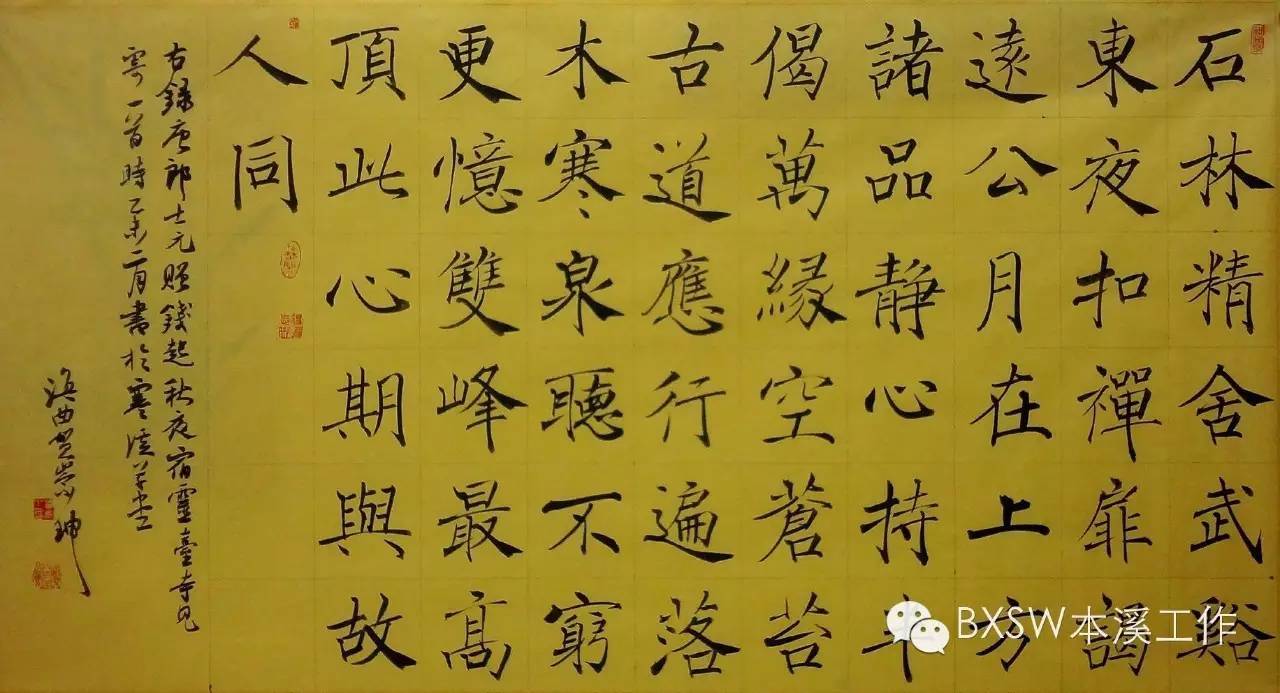 石林精舍武谿
東夜扣禪扉謁
遠公月在上方
諸品静心持半
偈萬緣空蒼苔
古道應行遍落
木寒泉聽不窮
更憶雙峰最髙
頂此心期與故
人同
右錄唐郎士元贈錢起秋夜宿靈臺寺見
寄一首時乙未二月書於寒溪草堂
BXSW本溪工作